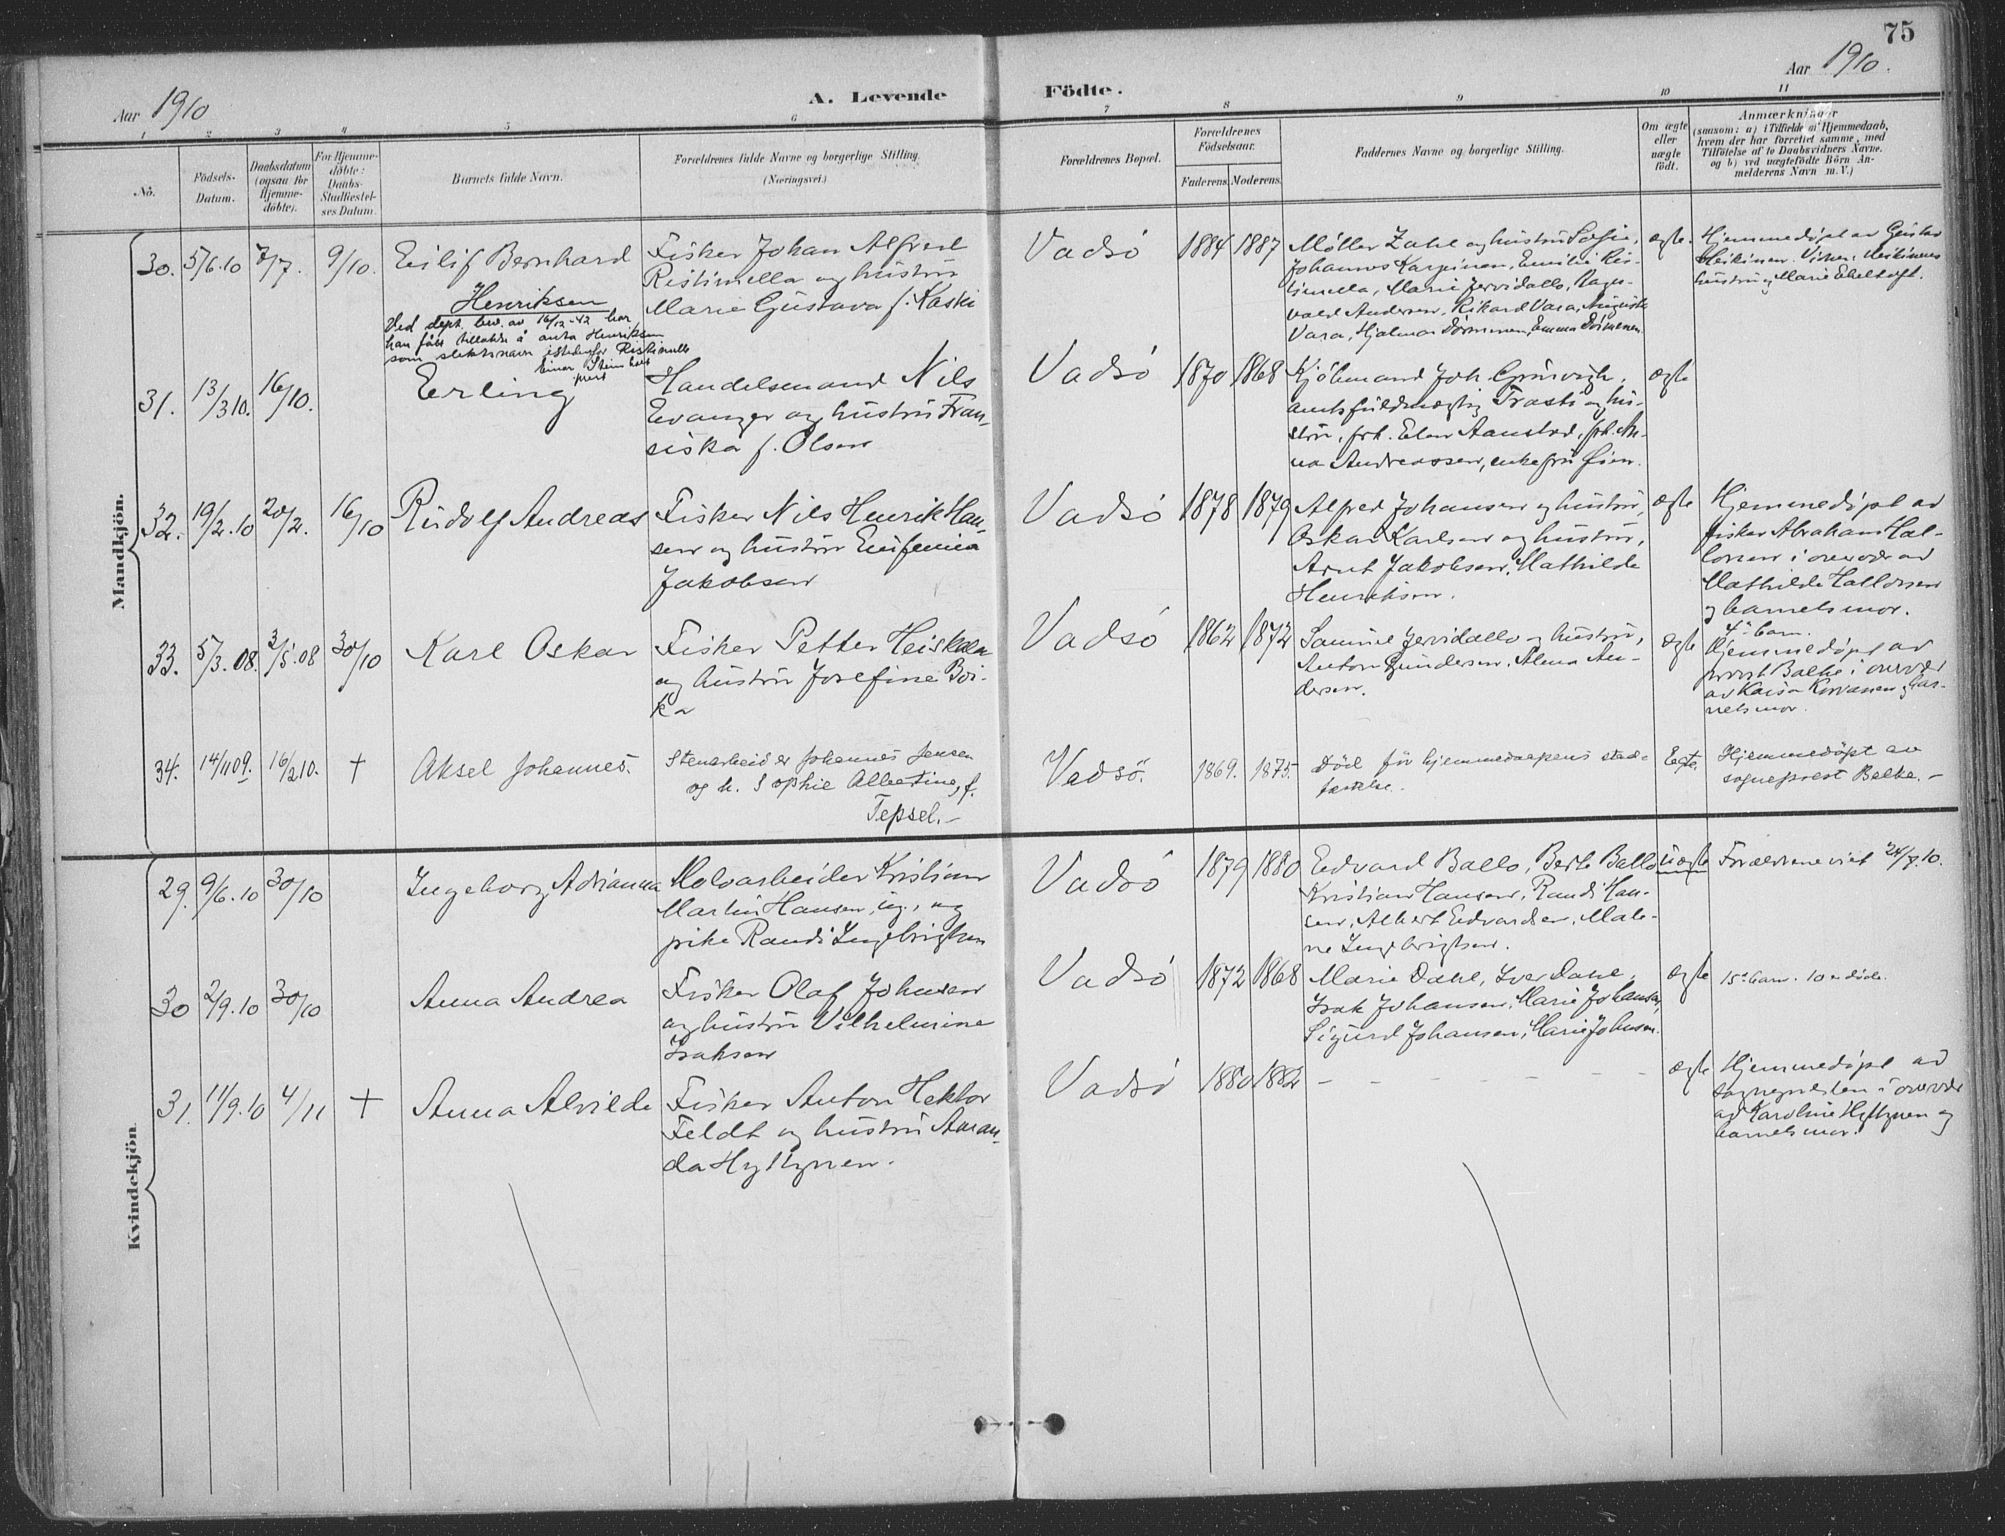 75
Aar 1910
A. Levende Födte.
Aar 1910.
1 2 3 4 5 6 7 8 9 10 11
No.
Födsels-
Datum.
Daabsdatum
(ogsaa for
Hjemme-
döbte).
For Hjemme-
döbte:
Daabs-
Stadfæstel-
ses Datum.
Barnets fulde Navn.
Forældrenes fulde Navne og borgerlige Stilling.
(Næringsvei.)
Forældrenes Bopæl.
Forældrenes
Födselsaar.
Faderens. Moderens.
Faddernes Navne og borgerlige Stilling.
Om ægte
eller
uægte
födt.
Anmærkninger
(saasom: a) i Tilfælde af Hjemmedaab,
hvem der har forrettet samme, med
Tilföielse af to Daabsvidners Navne,
og b) ved uægtefödte Börn An-
melderens Navn m. V.)
Mandkjön.
30. 5/6.10 7/7. 9/10.
Eilif Bernhard
Henriksen
Ved dept. bev. av 16/12-42 har
han fått tillatelse å anta Henriksen
som slektsnavn istedenfor Ristimella
Fisker Johan Alfred
Ristimella og hustru
Marie Gustava f. Kaski
Vadsö 1884 1887
Møller Zahl og hustru Sofie,
Johannes Karpinen, Emilie Ris-
timella, Marie Jervidalo, Ragn-
vald Andersen, Rikard Vara, Augusta
Vara, Hjalmar
ægte.
Hjemmedøpt av Gustav
Heikinen. Vidner: Heikinens
hustru og Marie
31. 13/3 10. 16/10.
Erling
Handelsmand Nils
Evanger og hustru Fran-
siska f. Olsen
Vadsö 1870 1868
Kjöbmand Joh. Grönvigh,
amtsfuldmægtig Trasti og hu-
stru, frk. Elen Aanstad, frk. An-
na Andreassen, enkefru
ægte
32. 19/2.10 20/2. 16/10
Rudolf Andreas
Fisker Nils Henrik Han-
sen og hustru Eufemia
Jakobsen
Vadsö 1878 1879
Alfred Johansen og hustru,
Oskar Karlsen og hustru,
Arnt Jakobsen, Mathilde
Henriksen.
ægte
Hjemmedøpt av
fisker Abraham Hal-
lonen i overvær av
Mathilde Hallonen
og barnets mor.
33. 5/3.08. 3/5.08 30/10
Karl Oskar
Fisker Petter Heiskala
og hustru Josefine Poi-
ka
Vadsö 1862 1872
Samuel Jervidalo og hustru,
Anton Gundersen, Alma An-
dersen.
ægte
barn.
Hjemmedøpt av
prost Balke i overvær
av Kaisa Korvanen og bar-
nets mor.
34. 14/11 09. 16/2 10. +
Aksel Johannes.
Stenarbeider Johannes Jensen
og h. Sophie Albertine, f.
Tepsel.-
Vadsö. 1869. 1875.
Död för hjemmedaapens stad-
fæstelse.
Egte.
Hjemmedøpt av
sogneprest Balke.-
Kvindekjön.
29. 9/6.10 30/10
Ingeborg Adrianna
Molvarbeider Kristian
Martin Hansen, ug., og
pike Randi Ingebrigtsen
Vadsö 1879 1880
Edvard Ballo, Berte Ballo
Kristian Hansen, Randi Han-
sen, Albert Edvardsen, Male-
ne Ingebrigtsen.
uægte
Forældrene viet 24/7.10.
30 2/9.10 30/10
Anna Andrea
Fisker Olaf Johnsen
og hustru Vilhelmine
Isaksen
Vadsö 1872 1868
Marie Dahl, Iver Dahl,
Isak Johansen, Marie Johansen,
Sigurd Johansen, Marie Johnsen.
ægte
15de barn. 10 er döde.
31. 11/9.10 4/11 +
Anna Alvilde
Fisker Anton Hektor
Feldt og hustru Aman-
da Hyttynen.
Vadsö 1880 1882 - - - - - - -
ægte
Hjemmedøpt av
sognepresten i overvær
av Karoline Hyttynen og
barnets mor.